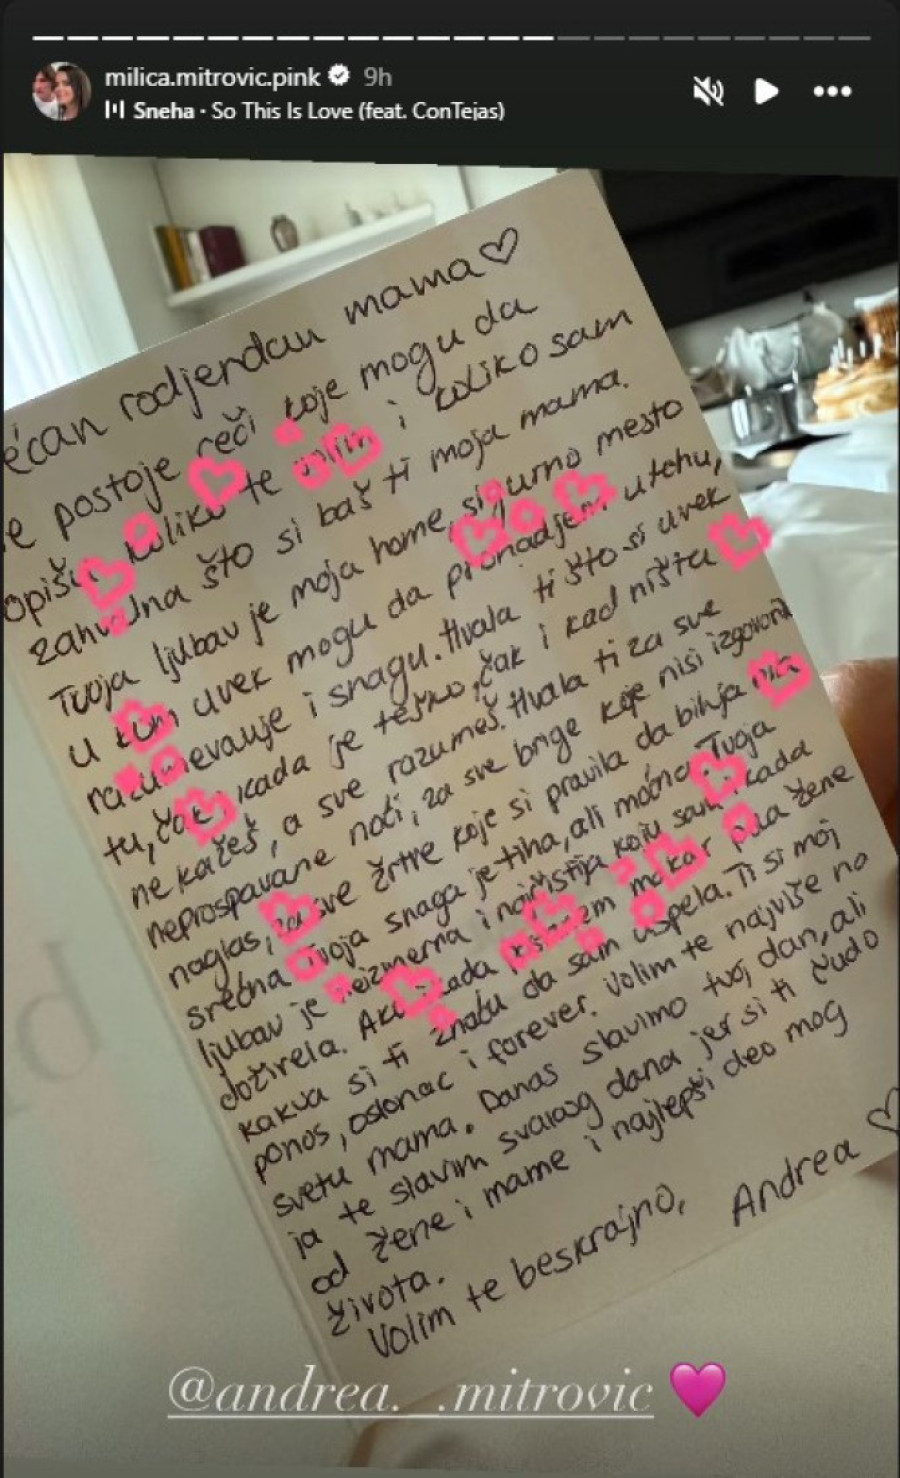 milica.mitrovic.pink 9h
Sneha · So This Is Love (feat. ConTejas)
ećan rodjendan mama
e postoje reči koje mogu da
opišu koliko te volim i koliko sam
zahvalna što si baš ti moja mama.
Tvoja ljubav je moja home, sigurno mesto
u kom uvek mogu da pronadjem utehu,
razumevanje i snagu. Hvala ti što si uvek
tu, čak i kada je teško, čak i kad ništa
ne kažeš, a sve razumeš. Hvala ti za sve
neprospavane noći, za sve brige koje nisi izgovorila
naglas, za sve žrtve koje si pravila da bih ja bila
srećna. Tvoja snaga je tiha, ali moćna. Tvoja
ljubav je neizmerna i najčistija koju sam ikada
doživela. Ako ikada postanem makar pola žene
kakva si ti znaću da sam uspela. Ti si moj
ponos, oslonac i forever. Volim te najviše na
svetu mama. Danas slavimo tvoj dan, ali
ja te slavim svakog dana jer si ti čudo
od žene i mame i najlepši deo mog
života.
Volim te beskrajno, Andrea
@andrea._.mitrovic